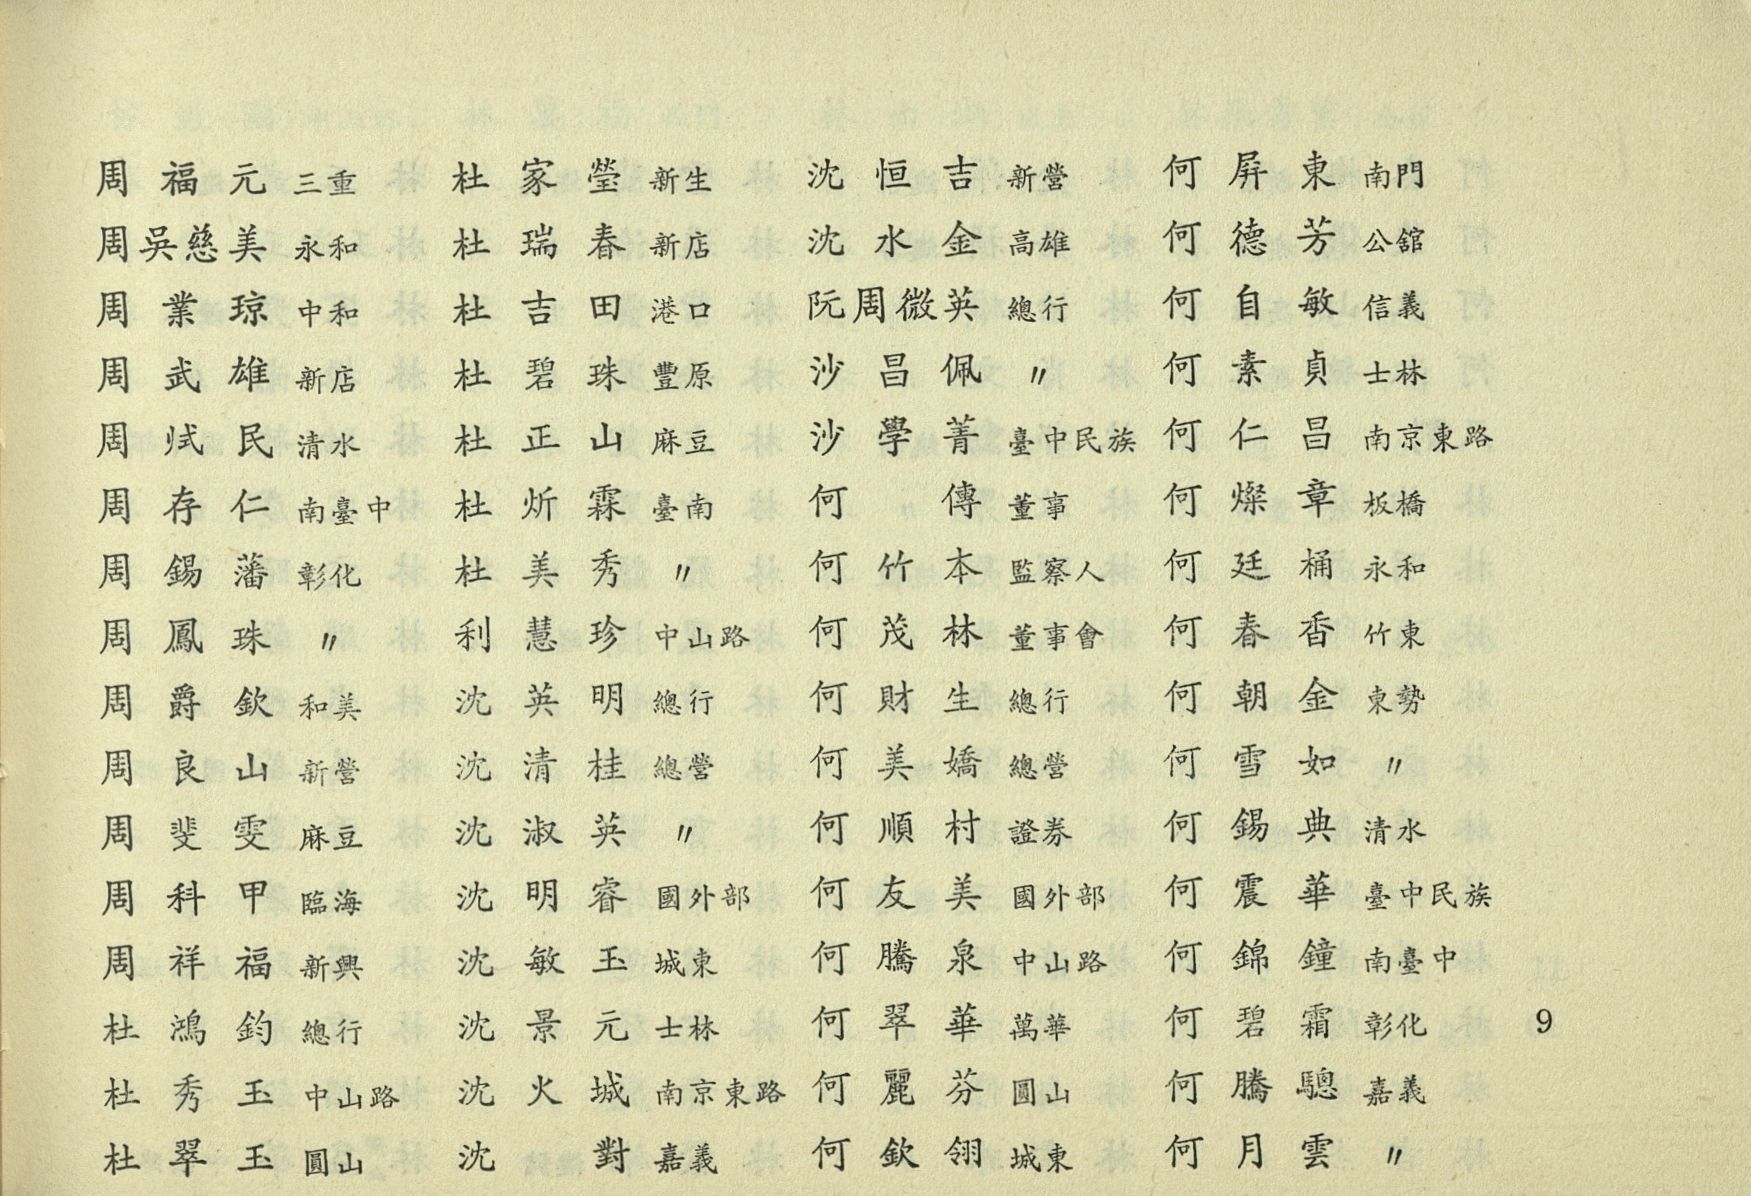 周福元 三重
周吳慈美 永和
周業琼 中和
周武雄 新店
周烒民 清水
周存仁 南臺中
周錫藩 彰化
周鳳珠 〃
周爵欽 和美
周良山 新營
周斐雯 麻豆
周科甲 臨海
周祥福 新興
杜鴻鈞 總行
杜秀玉 中山路
杜翠玉 圓山
杜家瑩 新生
杜瑞春 新店
杜吉田 港口
杜碧珠 豐原
杜正山 麻豆
杜炘霖 臺南
杜美秀 〃
利慧珍 中山路
沈英明 總行
沈清桂 總營
沈淑英 〃
沈明睿 國外部
沈敏玉 城東
沈景元 士林
沈火城 南京東路
沈對 嘉義
沈恒吉 新營
沈水金 高雄
阮周微英 總行
沙昌佩 〃
沙學菁 臺中民族
何傳 董事
何竹本 監察人
何茂林 董事會
何財生 總行
何美嬌 總營
何順村 證券
何友美 國外部
何騰泉 中山路
何翠華 萬華
何麗芬 圓山
何欽翎 城東
何屏東 南門
何德芳 公舘
何自敏 信義
何素貞 士林
何仁昌 南京東路
何燦章 板橋
何廷桶 永和
何春香 竹東
何朝金 東勢
何雪如 〃
何錫典 清水
何震華 臺中民族
何錦鐘 南臺中
何碧霜 彰化
何騰驄 嘉義
何月雲 〃
9